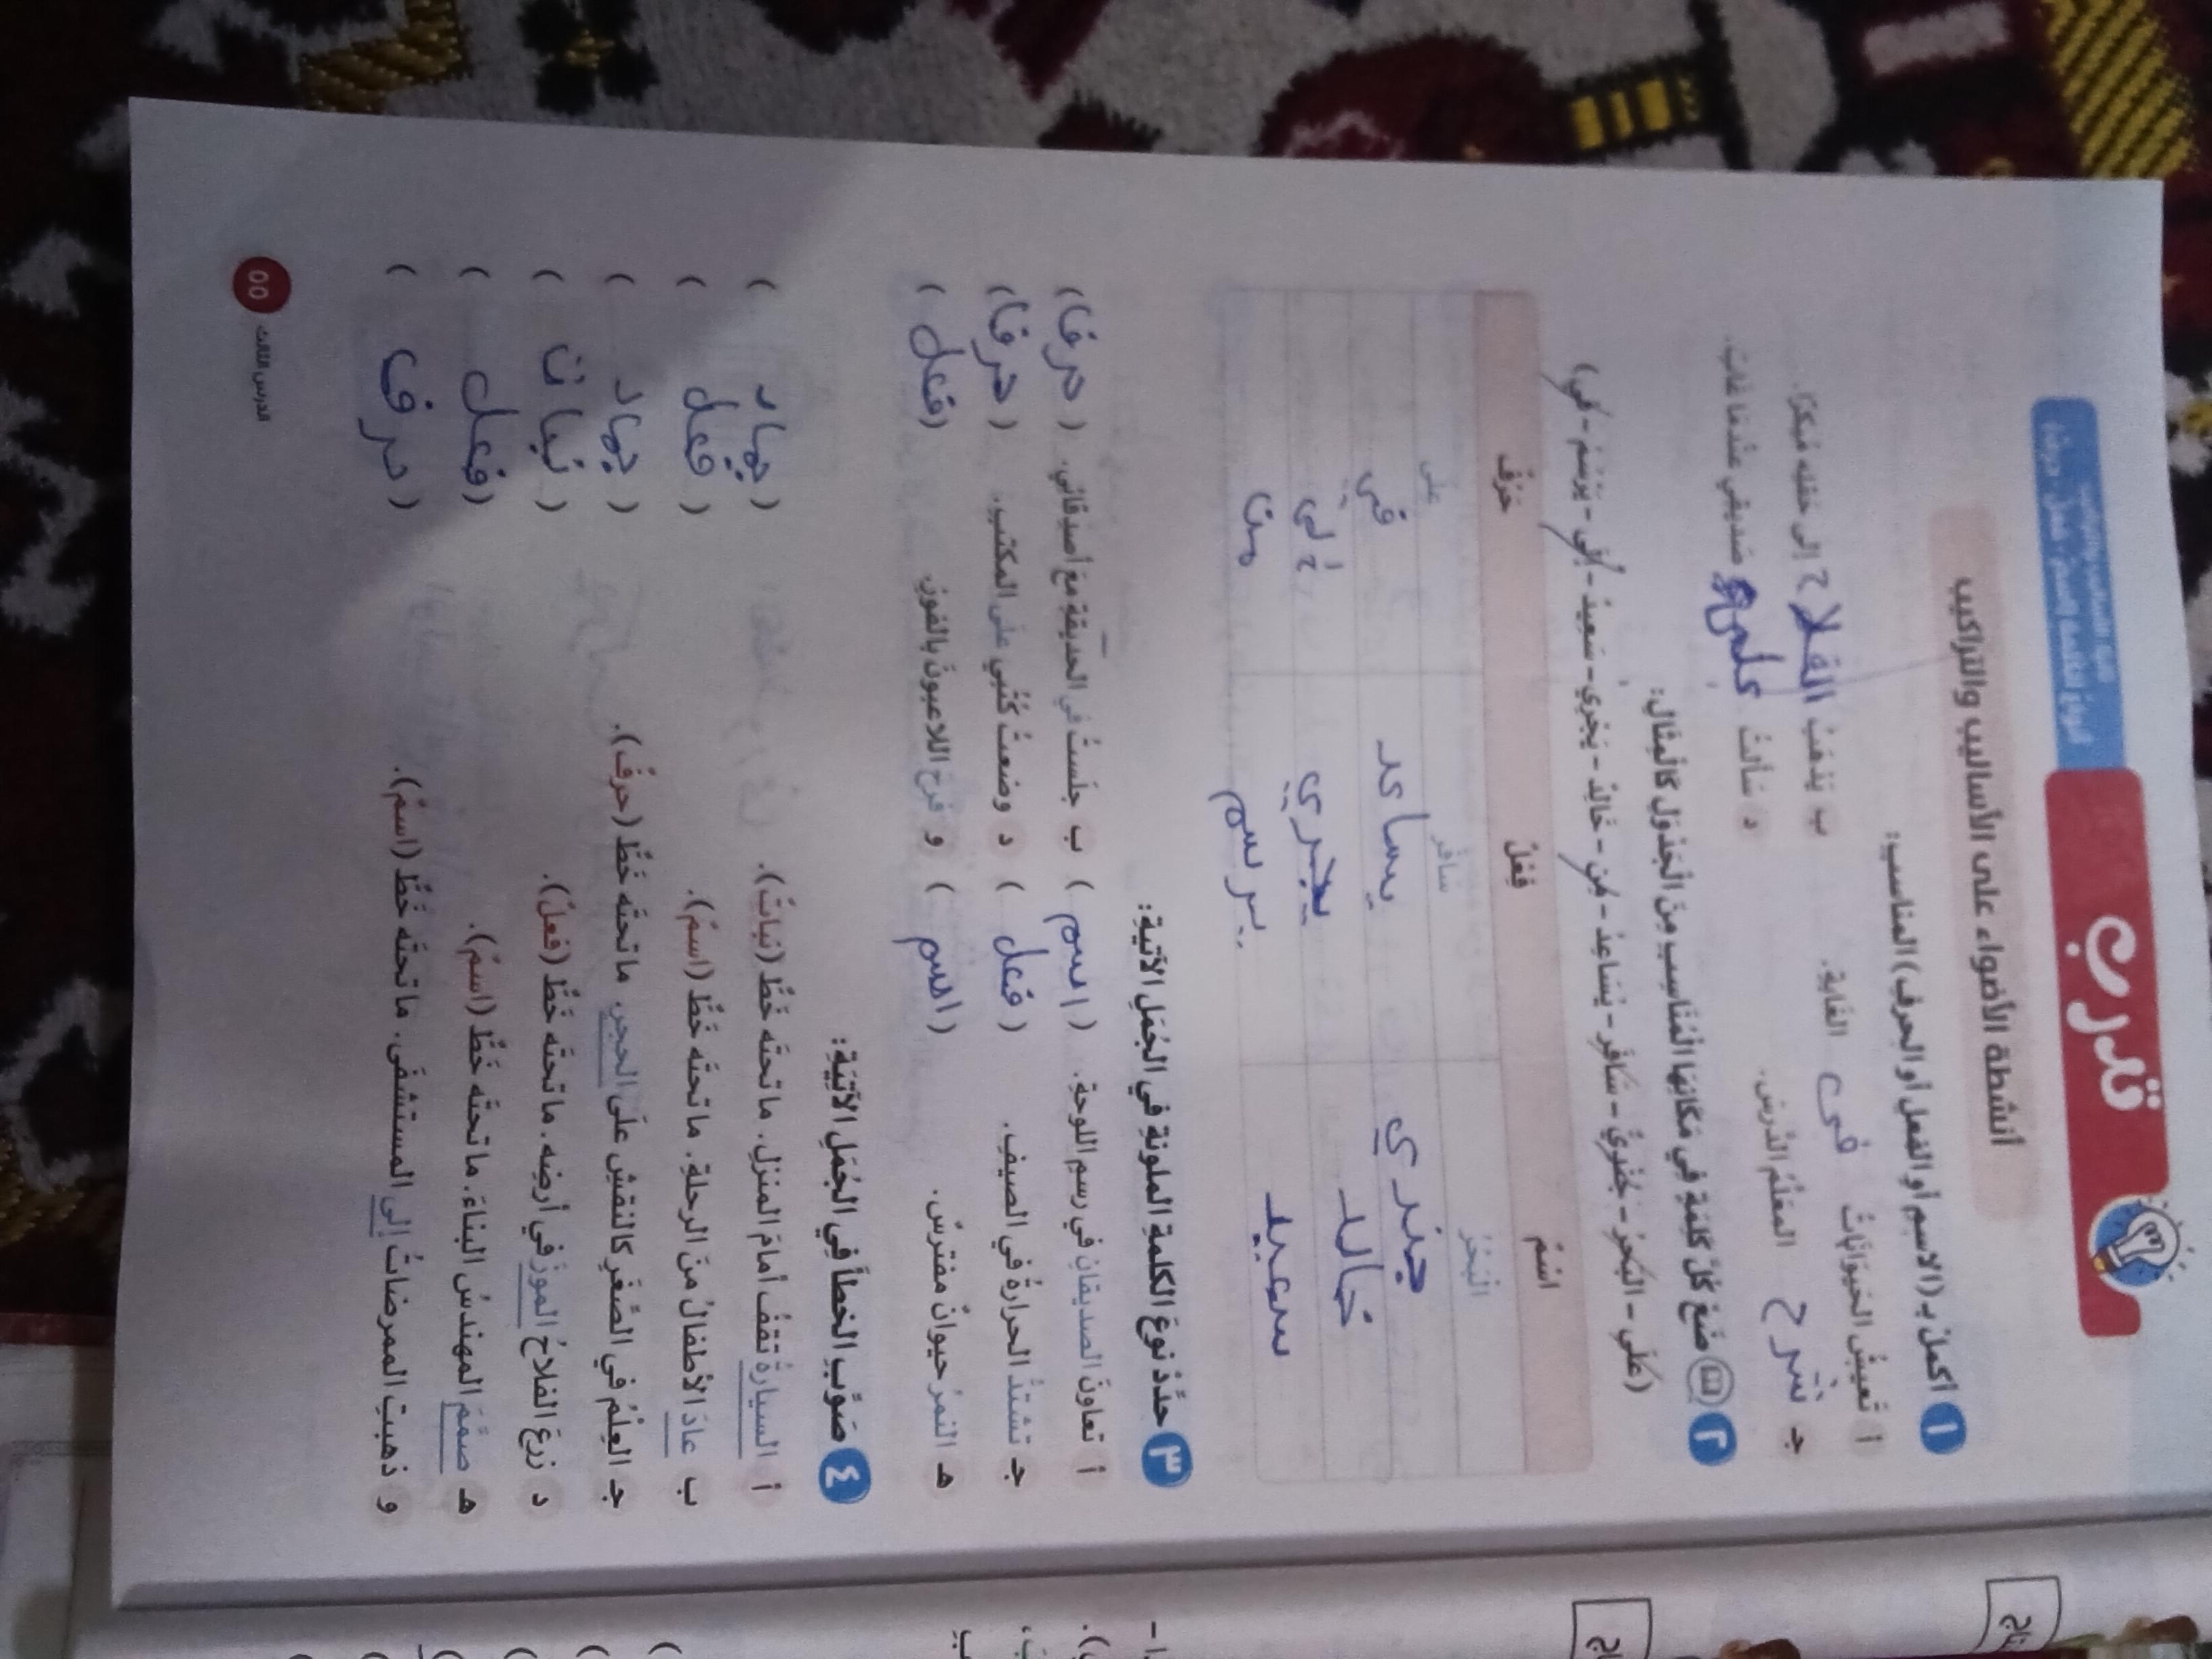 تدرب
أنشطة الأضواء على الأساليب والتراكيب
١ أكملْ بـ (الاسمِ أو الفعلِ أو الحرفِ) المناسبِ:
أ تَعيشُ الحَيَوَانَاتُ فى الغَابَةِ.
ب يَذهَبُ الفلاح إلى حَقلِه مُبكرًا.
جـ شرح المعَلِّمُ الدَّرسَ.
د سَأَلتُ صَديقي عِندَمَا غَابَ.
٢ ضَعْ كُلَّ كَلِمَةٍ فِي مَكَانِهَا الْمُنَاسِبِ مِنَ الْجَدْوَلِ كَالْمِثَالِ:
(عَلَى - البَحْرُ - جُنْدِيٌّ - سَافَرَ - يُسَاعِدُ - مِن - خَالِدٌ - يَجْرِي - سَعِيدٌ - إِلَى - يَرْسُمُ - فِي)
اسْمٌ فِعْلٌ حَرْفٌ
الْبَحْرُ سَافَرَ عَلَى
جندي يساعد في
خالد يجري إلى
سعيد يرسم من
٣ حدِّدْ نوعَ الكلمةِ الملونةِ في الجُمَلِ الآتيةِ:
أ تعاونَ الصديقانِ في رسمِ اللوحةِ. (اسم)
ب جلستُ في الحديقةِ معَ أصدقائي. (حرف)
جـ تشتدُّ الحرارةُ في الصيفِ. (فعل)
د وضعتُ كُتُبي على المكتبِ. (حرف)
هـ النمرُ حيوانٌ مفترسٌ. (اسم)
و فرحَ اللاعبونَ بالفوزِ. (فعل)
٤ صَوِّبِ الخطأَ فِي الجُمَلِ الآتِيَةِ:
أ السيارةُ تقفُ أمامَ المنزلِ. ما تحتَه خَطٌّ (نباتٌ). (جماد)
ب عادَ الأطفالُ منَ الرحلةِ. ما تحتَه خَطٌّ (اسمٌ). (فعل)
جـ العِلْمُ في الصِّغَرِ كالنقشِ علَى الحجرِ. ما تحتَه خَطٌّ (حرفٌ). (جماد)
د زرعَ الفلاحُ الموزَ في أرضِه. ما تحتَه خَطٌّ (فعلٌ). (نبات)
هـ صمَّمَ المهندسُ البناءَ. ما تحتَه خَطٌّ (اسمٌ). (فعل)
و ذهبتِ الممرضاتُ إلى المستشفَى. ما تحتَه خَطٌّ (اسمٌ). (حرف)
الدرس الثالث ٥٥